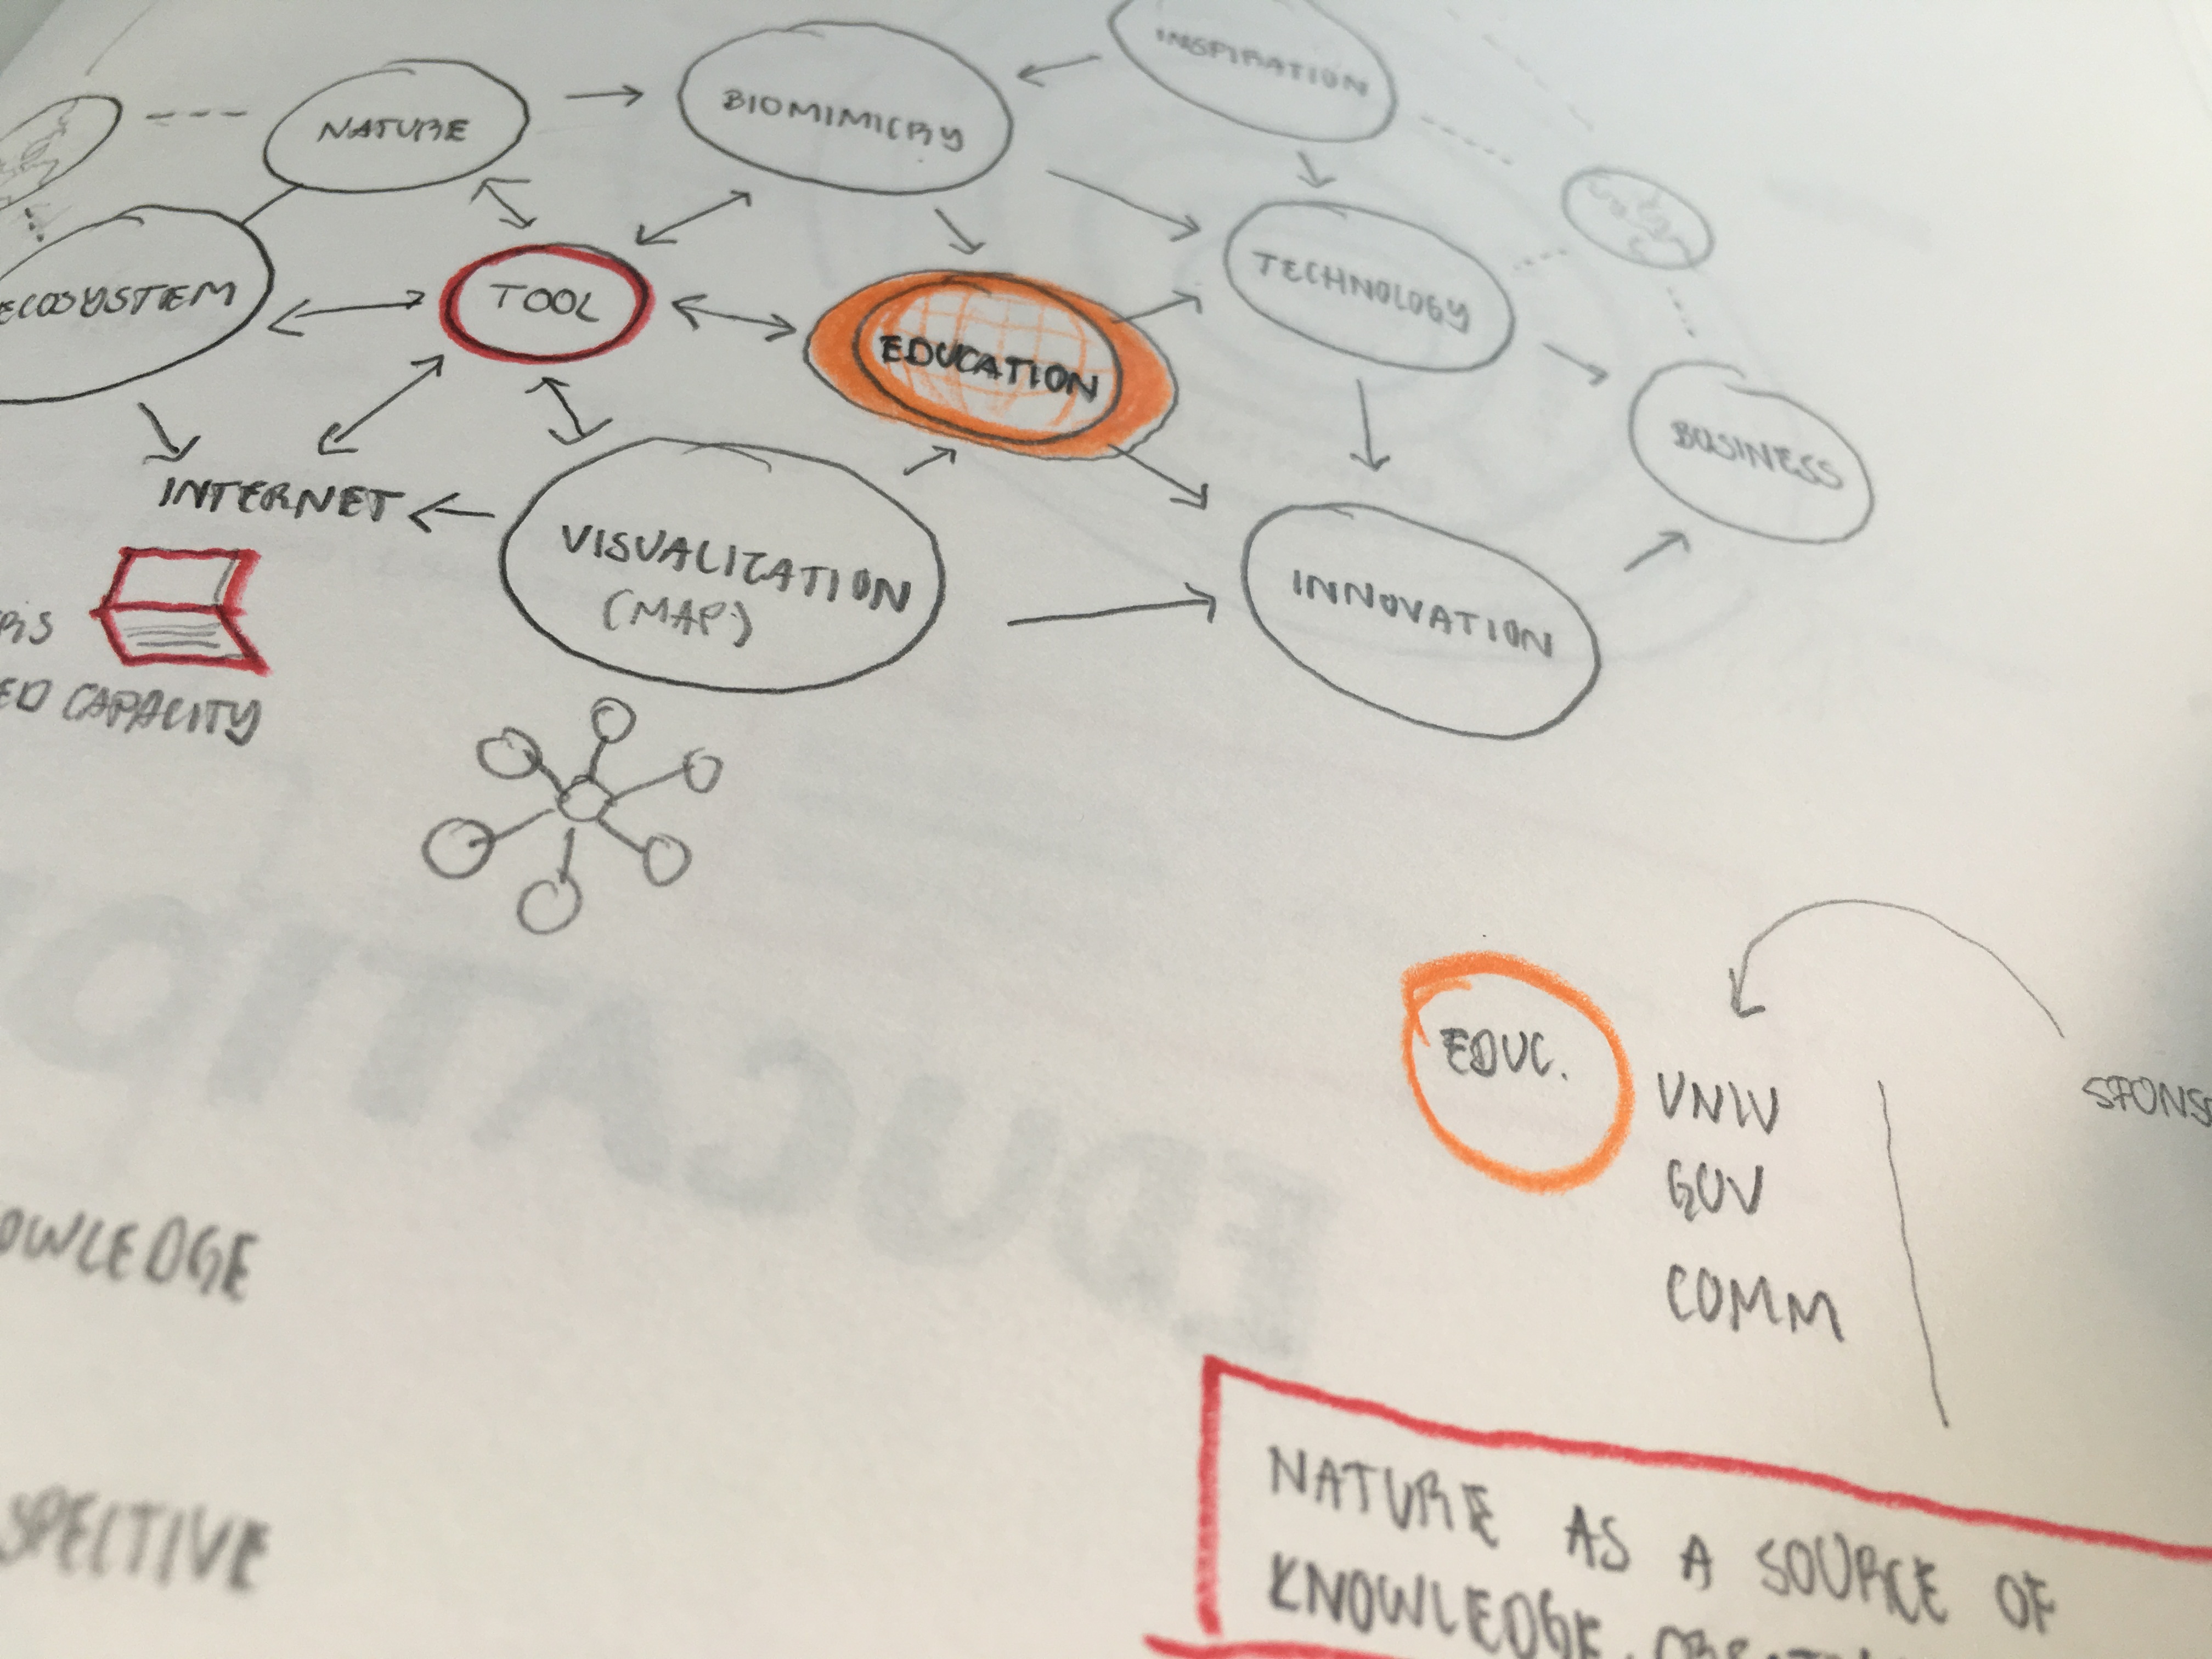 INSPIRATION
NATURE
BIOMIMICRY
TECHNOLOGY
ECOSYSTEM
TOOL
EDUCATION
BUSINESS
INTERNET
VISUALIZATION
(MAP)
INNOVATION
ED CAPACITY
EDUC.
UNIV
GOV
COMM
SPONS
OWLEDGE
SPECTIVE
NATURE AS A SOURCE OF
KNOWLEDGE,
EDUCATIO